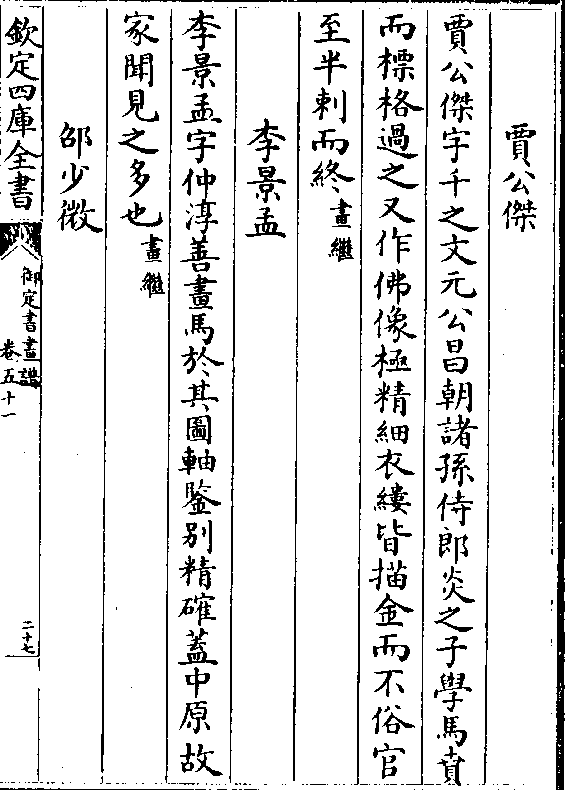 賈公傑
賈公傑字千之文元公昌朝諸孫侍郎炎之子學馬賁
而標格過之又作佛像極精細衣縷皆描金而不俗官
至半刺而終畫繼
李景孟
李景孟字仲淳善畫馬於其圖軸鑒别精確蓋中原故
家聞見之多也畫繼
邵少微
欽定四庫全書
御定書畫譜
卷五十一
二十七